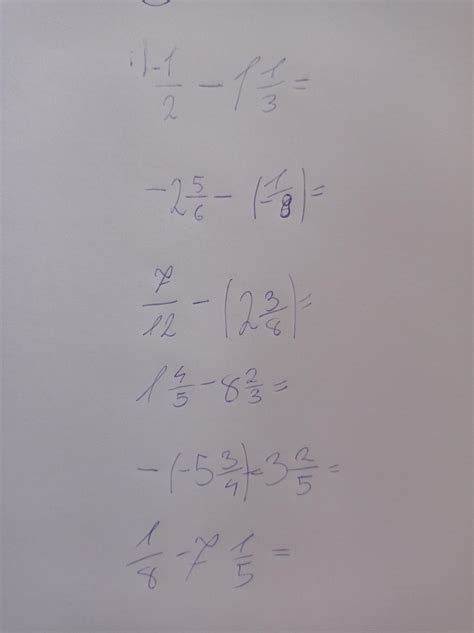 1) -1/2 - 1 1/3 =
-2 5/6 - (-1/8) =
7/12 - (2 3/8) =
1 4/5 - 8 2/3 =
-(-5 3/4) - 3 2/5 =
1/8 - 7 1/5 =